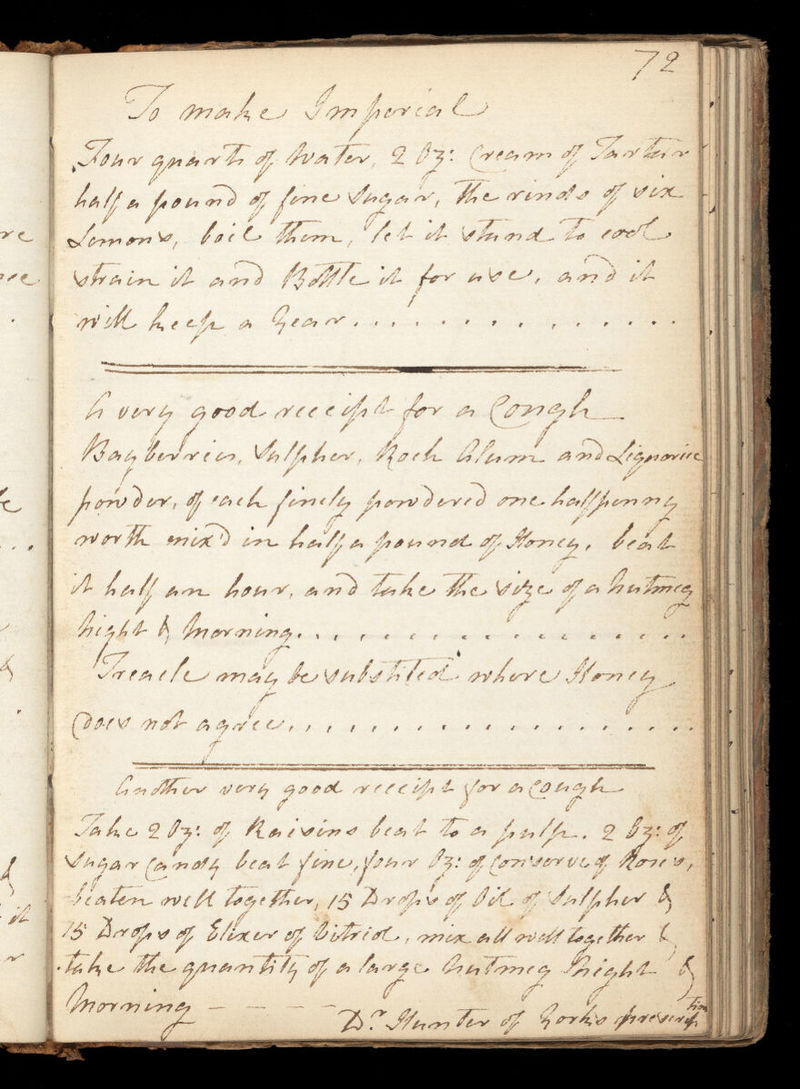 72
To make Imperial
Four quarts of Water, 2 Oz: Cream of Tartar
half a pound of fine Sugar, the rinds of six
Lemons, boil them, let it stand to cool
strain it and Bottle it for use, and it
will keep a Year...............
A very good receipt for a Cough
Bayberries, Sulpher, Roch Alum and Liquorice
powder, of each finely powdered one halfpenny
worth mix'd in half a pound of Honey, beat
it half an hour, and take the size of a Nutmeg
Night & Morning..................
Treacle may be substited where Honey
does not agree...................
Another very good receipt for a Cough
Take 2 Oz: of Raisins beat to a pulp. 2 Oz: of
Sugar Candy beat fine, four Oz: of Conserve of Roses,
beaten well together, 15 Drops of Oil of Sulpher &
15 Drops of Elixer of Vitriol, mix all well together &
take the quantity of a large Nutmeg Night &
Morning - - - -
Dr Hunter of Yorks prescription
re
it
r